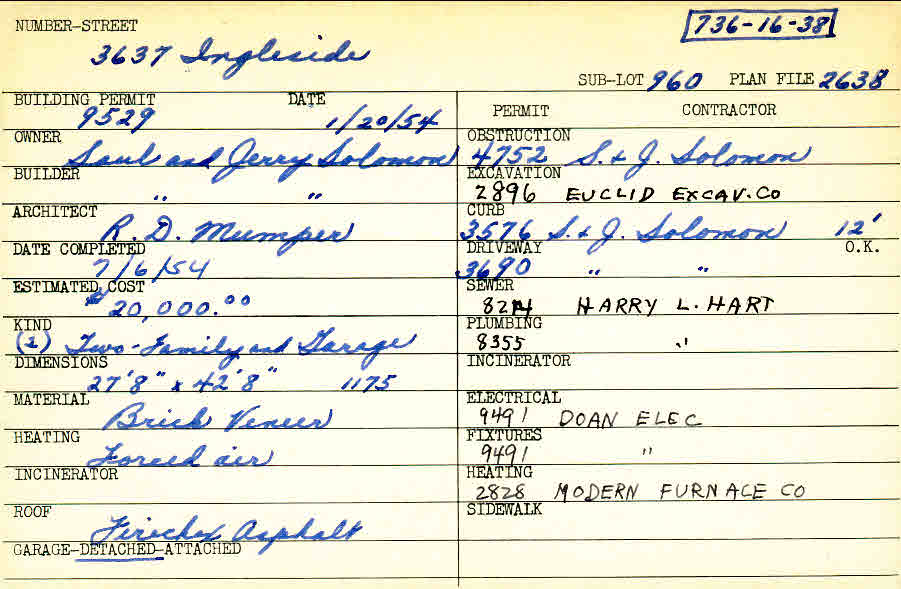 NUMBER-STREET
736-16-38
3637 Ingleside
SUB-LOT 960 PLAN FILE 2638
BUILDING PERMIT DATE
9529 1/20/54
OWNER
Saul and Jerry Solomon
BUILDER
" "
ARCHITECT
R. D. Mumper
DATE COMPLETED
7/6/54
ESTIMATED COST
$20,000.00
KIND
(2) Two-Family and Garage
DIMENSIONS
27'8" x 42'8" 1175
MATERIAL
Brick Veneer
HEATING
Forced air
INCINERATOR
ROOF
Firechex Asphalt
GARAGE-DETACHED-ATTACHED
PERMIT CONTRACTOR
OBSTRUCTION
4752 S. & J. Solomon
EXCAVATION
2896 EUCLID EXCAV. CO
CURB
3576 S. & J. Solomon 12'
DRIVEWAY O.K.
3690 " "
SEWER
HARRY L. HART
PLUMBING
8355 "
INCINERATOR
ELECTRICAL
9491 DOAN ELEC
FIXTURES
9491 "
HEATING
2828 MODERN FURNACE CO
SIDEWALK